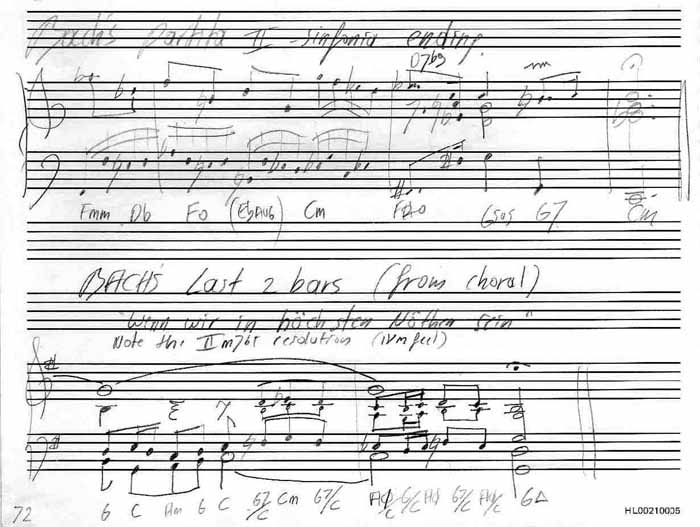 Bach's Partita II - sinfonia ending
D7b9
Fmm Db Fo (EbAug) Cm F#o Gsus G7 Cm
BACH'S Last 2 bars (from choral)
"Wenn wir in höchsten Nöthen sein"
Note the IIm7b5 resolution (IVm feel)
G C Am G C G7/C Cm G7/C G/C G7/C G△
72
HL00210005